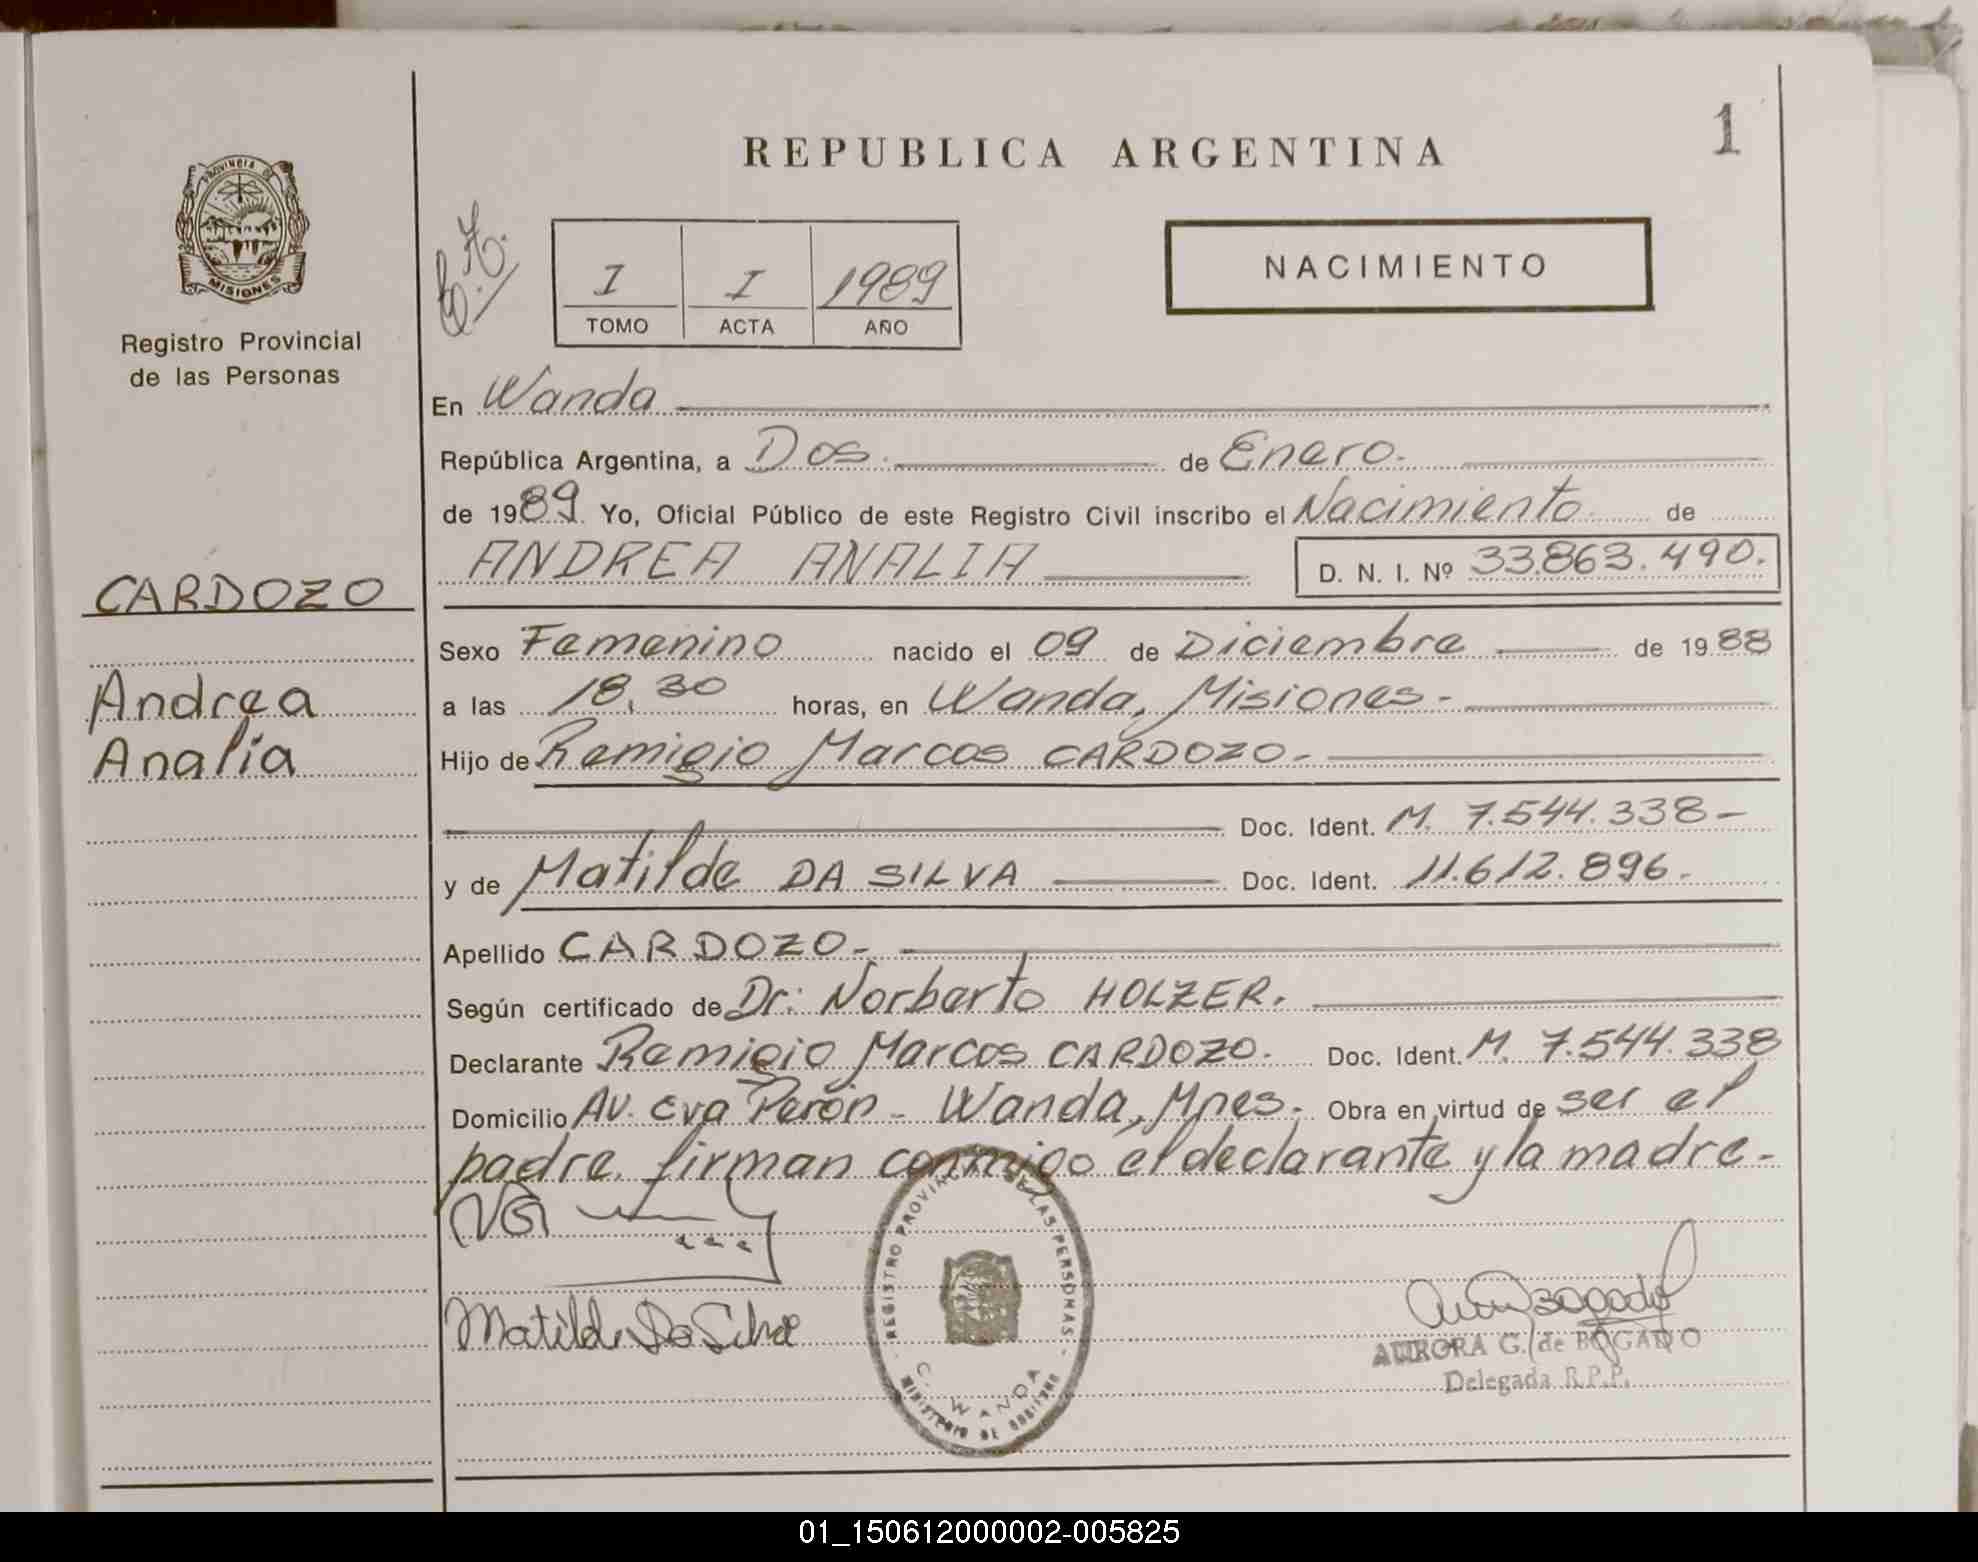 REPUBLICA ARGENTINA
1
PROVINCIA DE
MISIONES
Registro Provincial
de las Personas
I I 1989
TOMO ACTA AÑO
NACIMIENTO
En Wanda
República Argentina, a Dos. de Enero.
de 1989. Yo, Oficial Público de este Registro Civil inscribo el Nacimiento de
ANDREA ANALIA D. N. I. Nº 33.863.490.
CARDOZO
Andrea
Analía
Sexo Femenino nacido el 09 de Diciembre de 1988
a las 18,30 horas, en Wanda, Misiones.-
Hijo de Remigio Marcos CARDOZO.-
Doc. Ident. M. 7.544.338-
y de Matilde DA SILVA Doc. Ident. 11.612.896.
Apellido CARDOZO.-
Según certificado de Dr: Norberto HOLZER.
Declarante Remigio Marcos CARDOZO. Doc. Ident. M. 7.544.338
Domicilio Av. Eva Perón - Wanda, Mnes. Obra en virtud de ser el
padre. firman conmigo el declarante y la madre.-
Matilde Da Silva
REGISTRO PROVINCIAL DE LAS PERSONAS
C. WANDA
MINISTERIO DE GOBIERNO
AURORA G. de BOGADO
Delegada R.P.P.
01_150612000002-005825